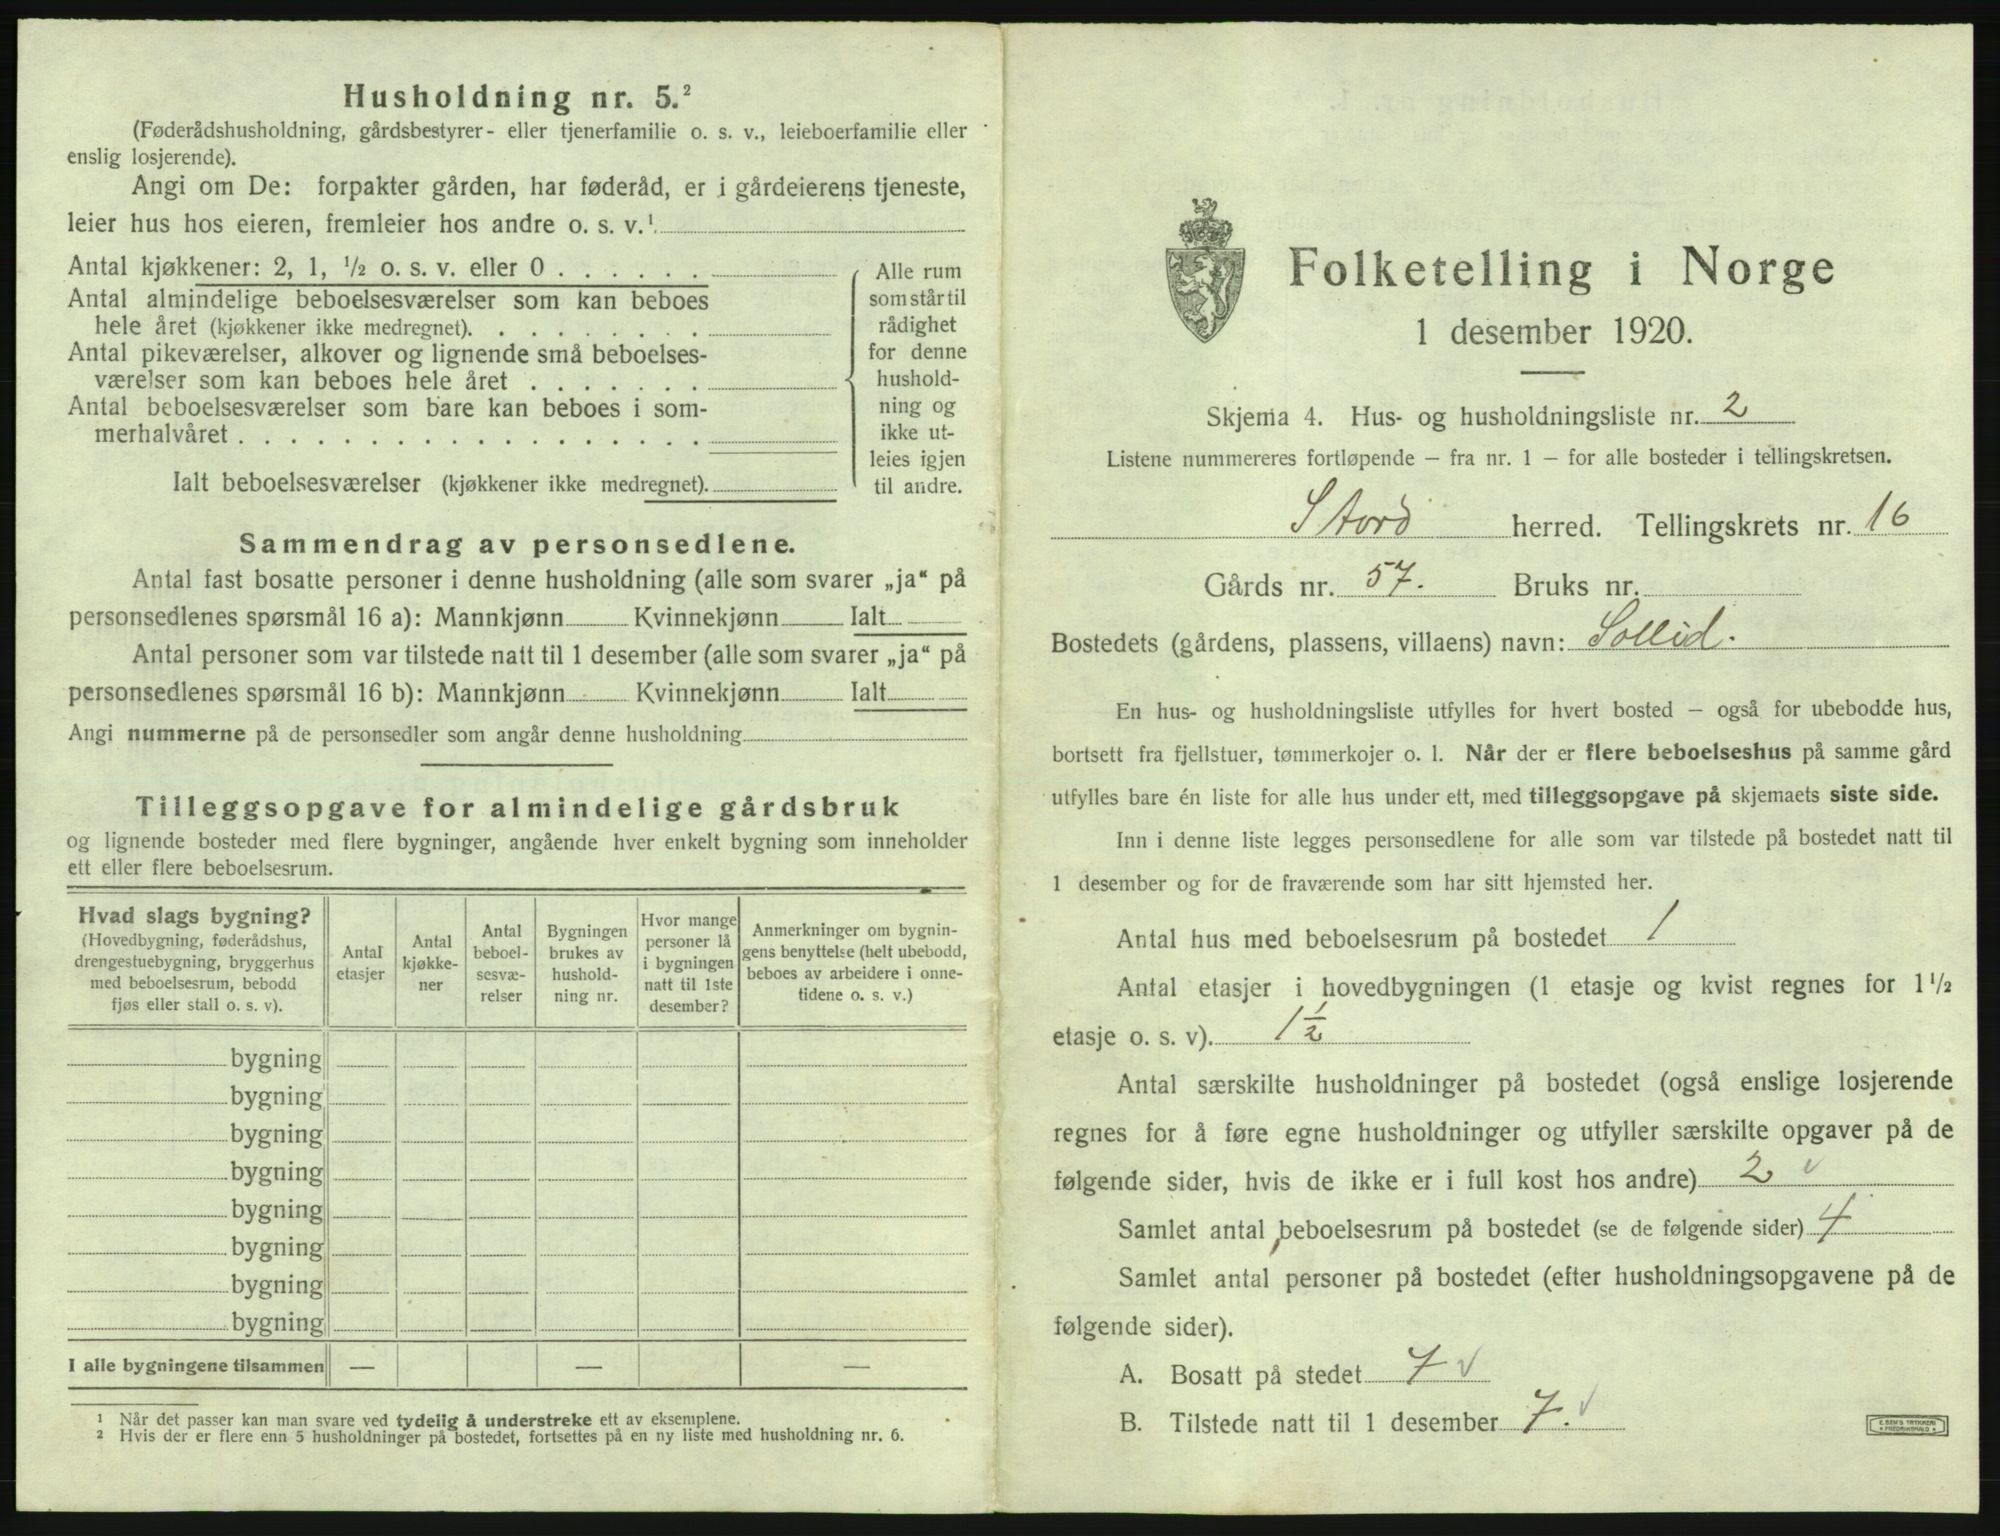 Husholdning nr. 5.²
(Føderådshusholdning, gårdsbestyrer- eller tjenerfamilie o. s. v., leieboerfamilie eller
enslig losjerende).
Angi om De: forpakter gården, har føderåd, er i gårdeierens tjeneste,
leier hus hos eieren, fremleier hos andre o. s. v.¹
Antal kjøkkener: 2, 1, ½ o. s. v. eller 0 . . . . . .
Antal almindelige beboelsesværelser som kan beboes
hele året (kjøkkener ikke medregnet). . . . . . . . .
Antal pikeværelser, alkover og lignende små beboelses-
værelser som kan beboes hele året . . . . . . .
Antal beboelsesværelser som bare kan beboes i som-
merhalvåret . . . . . . . . . . . . . . . . . .
Ialt beboelsesværelser (kjøkkener ikke medregnet).
Alle rum
som står til
rådighet
for denne
hushold-
ning og
ikke ut-
leies igjen
til andre.
Sammendrag av personsedlene.
Antal fast bosatte personer i denne husholdning (alle som svarer „ja“ på
personsedlenes spørsmål 16 a): Mannkjønn Kvinnekjønn Ialt
Antal personer som var tilstede natt til 1 desember (alle som svarer „ja“ på
personsedlenes spørsmål 16 b): Mannkjønn Kvinnekjønn Ialt
Angi nummerne på de personsedler som angår denne husholdning
Tilleggsopgave for almindelige gårdsbruk
og lignende bosteder med flere bygninger, angående hver enkelt bygning som inneholder
ett eller flere beboelsesrum.
Hvad slags bygning?
(Hovedbygning, føderådshus,
drengestuebygning, bryggerhus
med beboelsesrum, bebodd
fjøs eller stall o. s. v).
Antal
etasjer
Antal
kjøkke-
ner
Antal
beboel-
sesvæ-
relser
Bygningen
brukes av
hushold-
ning nr.
Hvor mange
personer lå
i bygningen
natt til 1ste
desember?
Anmerkninger om bygnin-
gens benyttelse (helt ubebodd,
beboes av arbeidere i onne-
tidene o. s. v.)
bygning
bygning
bygning
bygning
bygning
bygning
bygning
bygning
I alle bygningene tilsammen — — —
¹ Når det passer kan man svare ved tydelig å understreke ett av eksemplene.
² Hvis der er flere enn 5 husholdninger på bostedet, fortsettes på en ny liste med husholdning nr. 6.
Folketelling i Norge
1 desember 1920.
Skjema 4. Hus- og husholdningsliste nr. 2
Listene nummereres fortløpende – fra nr. 1 – for alle bosteder i tellingskretsen.
Stord herred. Tellingskrets nr. 16
Gårds nr. 57. Bruks nr.
Bostedets (gårdens, plassens, villaens) navn: Sollid.
En hus- og husholdningsliste utfylles for hvert bosted – også for ubebodde hus,
bortsett fra fjellstuer, tømmerkojer o. l. Når der er flere beboelseshus på samme gård
utfylles bare én liste for alle hus under ett, med tilleggsopgave på skjemaets siste side.
Inn i denne liste legges personsedlene for alle som var tilstede på bostedet natt til
1 desember og for de fraværende som har sitt hjemsted her.
Antal hus med beboelsesrum på bostedet 1
Antal etasjer i hovedbygningen (1 etasje og kvist regnes for 1½
etasje o. s. v). 1½
Antal særskilte husholdninger på bostedet (også enslige losjerende
regnes for å føre egne husholdninger og utfyller særskilte opgaver på de
følgende sider, hvis de ikke er i full kost hos andre) 2 ✓
Samlet antal beboelsesrum på bostedet (se de følgende sider) 4
Samlet antal personer på bostedet (efter husholdningsopgavene på de
følgende sider).
A. Bosatt på stedet 7 ✓
B. Tilstede natt til 1 desember 7. ✓
E. SEM'S TRYKKERI
* FREDRIKSHALD *